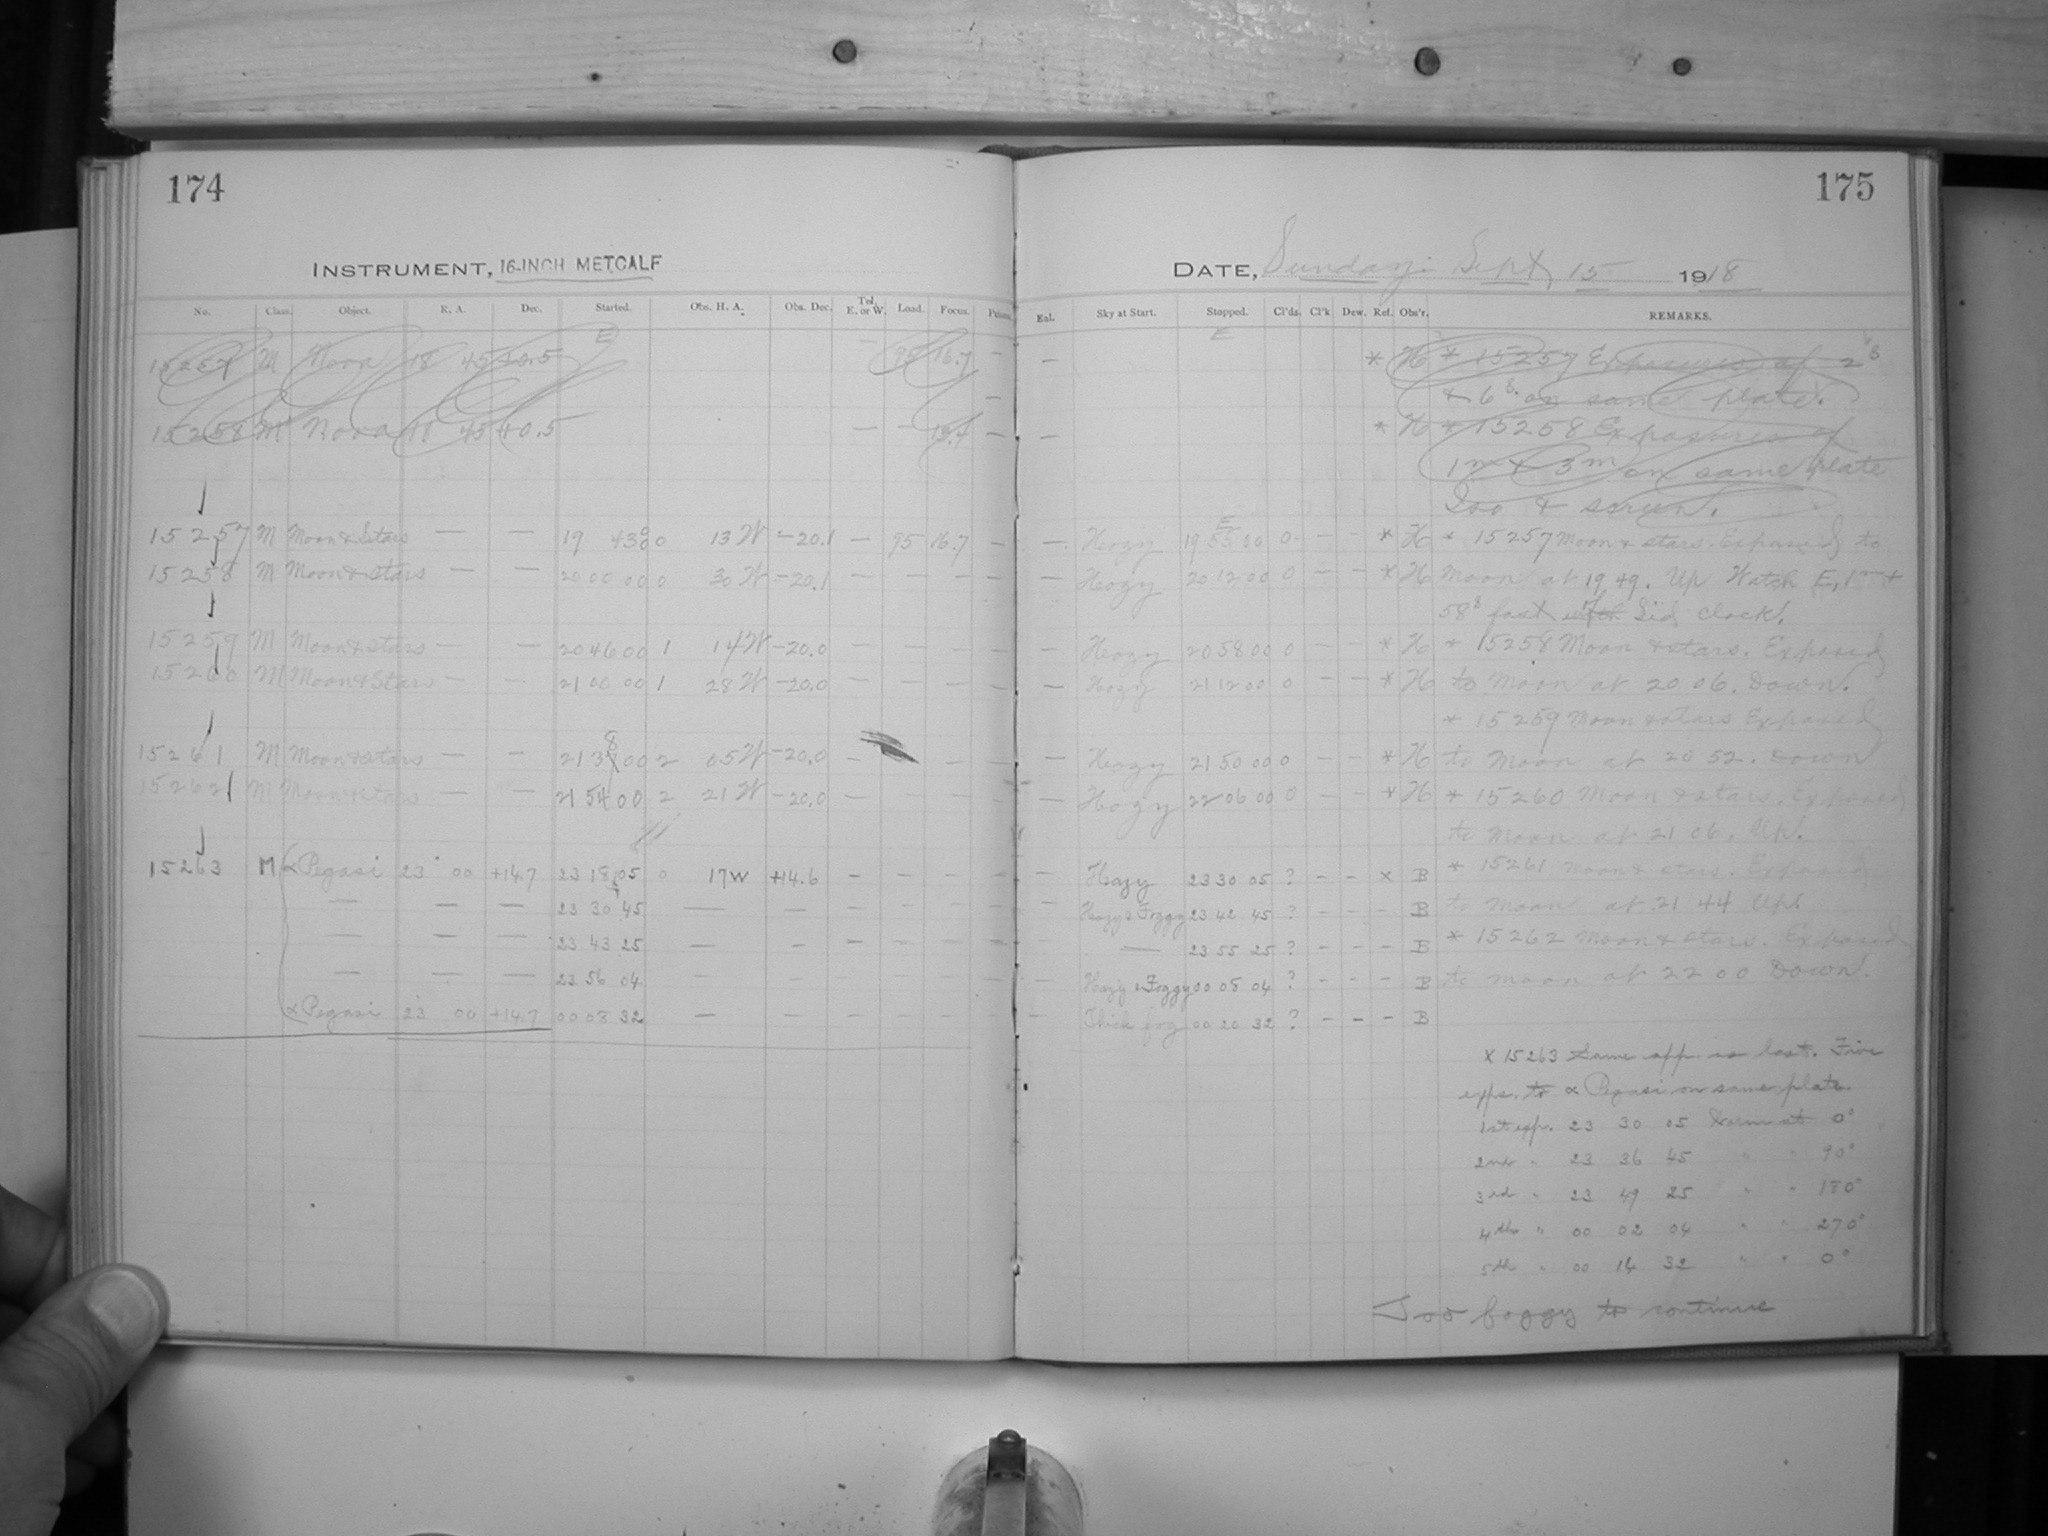 174
INSTRUMENT, 16-INCH METCALF
No. Class. Object. R. A. Dec. Started. Obs. H. A. Obs. Dec. Tel. E. or W. Load. Focus.
E
15257 M Nova 18 45 +0.5 95 16.7 —
15258 M Nova 18 45 +0.5 — — 15.4 —
15257 M Moon & Stars — — 19 43 00 0 13 W -20.1 — 95 16.7 —
15258 M Moon & Stars — — 20 00 00 0 30 W -20.1 — — — —
15259 M Moon & Stars — — 20 46 00 1 14 W -20.0 — — — —
15260 M Moon & Stars — — 21 00 00 1 28 W -20.0 — — — —
15261 M Moon & Stars — — 21 38 00 2 05 W -20.0 — — —
15262 M Moon & Stars — — 21 54 00 2 21 W -20.0 — — — —
15263 M α Pegasi 23 00 +14.7 23 18 05 0 17 W +14.6 — — — —
— — — 23 30 45 — — — — — —
— — — 23 43 25 — — — — — —
— — — 23 56 04 — — — — — —
α Pegasi 23 00 +14.7 00 08 32 — — — — — —
175
DATE, Sunday: Sept, 15 1918
Eal. Sky at Start. Stopped. Cl'ds. Cl'k Dew. Ref. Obs'r. REMARKS.
E
— * H * 15257 Exposures of 2s
& 6s. on same plate.
— * H * 15258 Exposures of
1m & 3m on same plate
200 & screen.
E
— Hazy 19 55 00 0 — — * H * 15257 Moon & stars. Exposed to
— Hazy 20 12 00 0 — — * H Moon at 19 49. Up Watch E, 1m +
58s fast Sid clock.
— Hazy 20 58 00 0 — — * H * 15258 Moon & stars. Exposed
— Hazy 21 12 00 0 — — * H to Moon at 20 06. Down.
* 15259 Moon & stars Exposed
— Hazy 21 50 00 0 — — * H to Moon at 20 52. Down
— Hazy 22 06 00 0 — — * H * 15260 Moon & stars. Exposed
to Moon at 21 06. Up.
— Hazy 23 30 05 ? — — x B * 15261 Moon & stars. Exposed
— Hazy & Foggy 23 42 45 ? — — — B to Moon at 21 44 Up.
— 23 55 25 ? — — — B * 15262 Moon & stars. Exposed
— Hazy & Foggy 00 08 04 ? — — — B to moon at 22 00 Down.
— Thick fog 00 20 32 ? — — — B
X 15263 Same app as last. Five
exps. to α Pegasi on same plate.
1st exp. 23 30 05 at 0°
2nd " 23 36 45 " " 90°
3rd " 23 49 25 " " 180°
4th " 00 02 04 " " 270°
5th " 00 14 32 " " 0°
Too foggy to continue